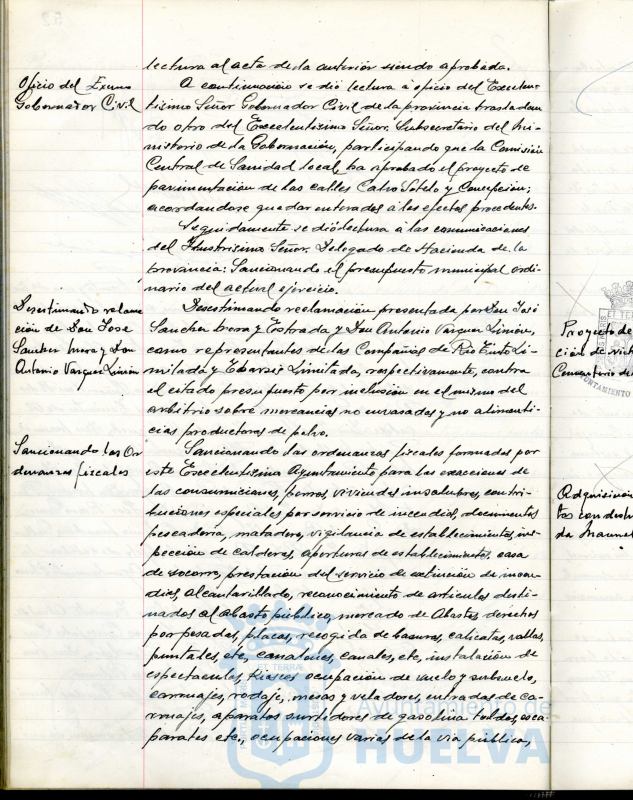 lectura al acta de la anterior siendo aprobada.
Oficio del Excmo
Gobernador Civil
A continuación se dió lectura á oficio del Excelen-
tísimo Señor Gobernador Civil de la provincia trasladan
do otro del Excelentísimo Señor Subsecretario del Mi-
nisterio de la Gobernación, participando que la Comisión
Central de Sanidad local, ha aprobado el proyecto de
pavimentación de las calles Calvo Sotelo y Concepción;
acordandose quedar enterados á los efectos procedentes.
Seguidamente se dió lectura a las comunicaciones
del Ilustrísimo Señor Delegado de Hacienda de la
provincia: Sancionando el presupuesto municipal ordi-
nario del actual ejercicio.
Desestimando reclama
ción de Don Jose
Sanchez Mora y Don
Antonio Vazquez Limón
Desestimando reclamación presentada por Don José
Sanchez Mora y Estrada y Don Antonio Vazquez Limón,
como representantes de las Compañías de Rio Tinto Li-
mitada y Limitada, respectivamente, contra
el citado presupuesto por inclusión en el mismo del
arbitrio sobre mercancias no envasadas y no alimenti-
cias productoras de polvo.
Sancionando las Or
denanzas fiscales
Sancionando las ordenanzas fiscales formadas por
este Excelentísimo Ayuntamiento para las exacciones de
las consumiciones, perros, viviendas insalubres, contri-
buciones especiales por servicio de incendios, documentos
pescaderia, matadero, vigilancia de establecimientos, ins
pección de calderas, aperturas de establecimientos, casa
de socorro, prestación del servicio de extinción de incen-
dios, alcantarillado, reconocimiento de articulos desti-
nados al abasto público, mercado de Abastos, derechos
por pesadas, placas, recogida de basuras, calicatas, vallas,
puntales, etc, canalones, canales, etc, instalación de
espectaculos, kioscos ocupación de vuelo y subsuelo,
carruajes, rodaje, mesas y veladores, entradas de ca-
rruajes, aparatos surtidores de gasolina toldos, esca
parates etc., ocupaciones varias de la via publica,
Proyecto de
ción de
Cementerio de
Adquisición
tos con dest
da
Ayuntamiento de
HUELVA